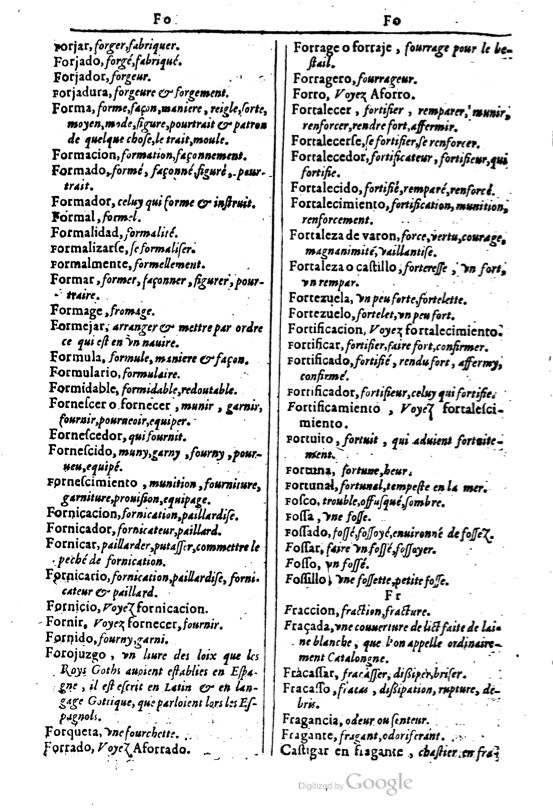 Fo
Forjar, forger, fabriquer.
Forjado, forgé, fabriqué.
Forjador, forgeur.
Forjadura, forgeure & forgement.
Forma, forme, façon, maniere, reigle, sorte,
moyen, mode, figure, pourtrait & patron
de quelque chose, le trait, moule.
Formacion, formation, façonnement.
Formado, formé, façonné, figuré, pour-
trait.
Formador, celuy qui forme & instruit.
Formal, formel.
Formalidad, formalité.
Formalizarse, se formaliser.
Formalmente, formellement.
Formar, former, façonner, figurer, pour-
traire.
Formage, fromage.
Formejar, arranger & mettre par ordre
ce qui est en vn nauire.
Formula, formule, maniere & façon.
Formulario, formulaire.
Formidable, formidable, redoutable.
Fornescer o fornecer, munir, garnir,
fournir, pourueoir, equiper.
Fornescedor, qui fournit.
Fornescido, muny, garny, fourny, pour-
ueu, equipé.
Fornescimiento, munition, fourniture,
garniture, prouision, equipage.
Fornicacion, fornication, paillardise.
Fornicador, fornicateur, paillard.
Fornicar, paillarder, putasser, commettre le
peché de fornication.
Fornicario, fornication, paillardise, forni-
cateur & paillard.
Fornicio, Voyez fornicacion.
Fornir, Voyez fornecer, fournir.
Fornido, fourny, garni.
Forojuzgo, vn liure des loix que les
Roys Goths auoient establies en Espa-
gne, il est escrit en Latin & en lan-
gage Gottique, que parloient lors les Es-
pagnols.
Forqueta, vne fourchette.
Forrado, Voyez Aforrado.
Fo
Forrage o forraje, fourrage pour le be-
stail.
Forragero, fourrageur.
Forro, Voyez Aforro.
Fortalecer, fortifier, remparer, munir,
renforcer, rendre fort, affermir.
Fortalecerse, se fortifier, se renforcer.
Fortalecedor, fortificateur, fortifieur, qui
fortifie.
Fortalecido, fortifié, remparé, renforcé.
Fortalecimiento, fortification, munition,
renforcement.
Fortaleza de varon, force, vertu, courage,
magnanimité, vaillantise.
Fortaleza o castillo, forteresse, vn fort,
vn rempar.
Fortezuela, vn peu forte, fortelette.
Fortezuelo, fortelet, vn peu fort.
Fortificacion, Voyez fortalecimiento.
Fortificar, fortifier, faire fort, confirmer.
Fortificado, fortifié, rendu fort, affermy,
confirmé.
Fortificador, fortifieur, celuy qui fortifie.
Fortificamiento, Voyez fortalesci-
miento.
Fortuito, fortuit, qui aduient fortuite-
ment.
Fortuna, fortune, heur.
Fortunal, fortunal, tempeste en la mer.
Fosco, trouble, offusqué, sombre.
Fossa, vne fosse.
Fossado, fossé, fossoyé, enuironné de fossez.
Fossar, faire vn fossé, fossoyer.
Fosso, vn fossé.
Fossillo, vne fossette, petite fosse.
Fr
Fraccion, fraction, fracture.
Fraçada, vne couuerture de lict faite de lai-
ne blanche, que l'on appelle ordinaire-
ment Catalongne.
Fracassar, fracasser, dissiper, briser.
Fracasso, fracas, dissipation, rupture, de-
bris.
Fragancia, odeur ou senteur.
Fragante, fragant, odoriferant.
Castigar en fragante, chastier en fra
Digitized by Google